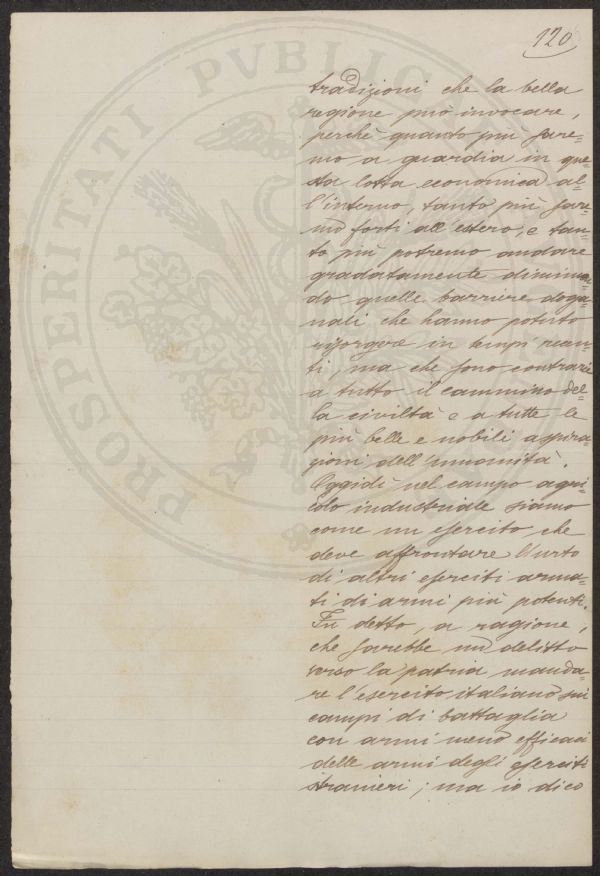 120
tradizioni che la bella
regione può invocare,
perchè quanto più sare=
mo a guardia in que=
sta lotta economica al=
l'interno, tanto più sare=
mo forti all'estero, e tan=
to più potremo andare
gradatamente diminuen=
do quelle barriere doga=
nali che hanno potuto
risorgere in tempi recen=
ti, ma che sono contrarie
a tutto il cammino del=
la civiltà e a tutte le
più belle e nobili aspira=
zioni dell'umanità.
Oggidì nel campo agri=
colo industriale siamo
come un esercito che
deve affrontare l'urto
di altri eserciti arma=
ti di armi più potenti.
Fu detto, a ragione,
che sarebbe un delitto
verso la patria manda=
re l'esercito italiano sui
campi di battaglia
con armi meno efficaci
delle armi degli eserciti
stranieri; ma io dico
PROSPERITATI PVBLIC